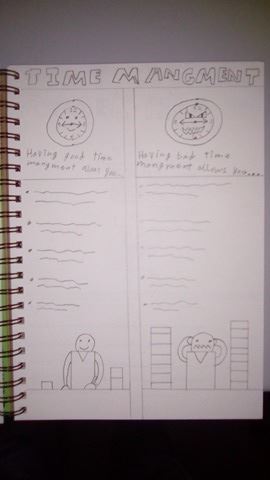 TIME MANGMENT
Having good time
mangment allows you...
Having bad time
mangment allows you....